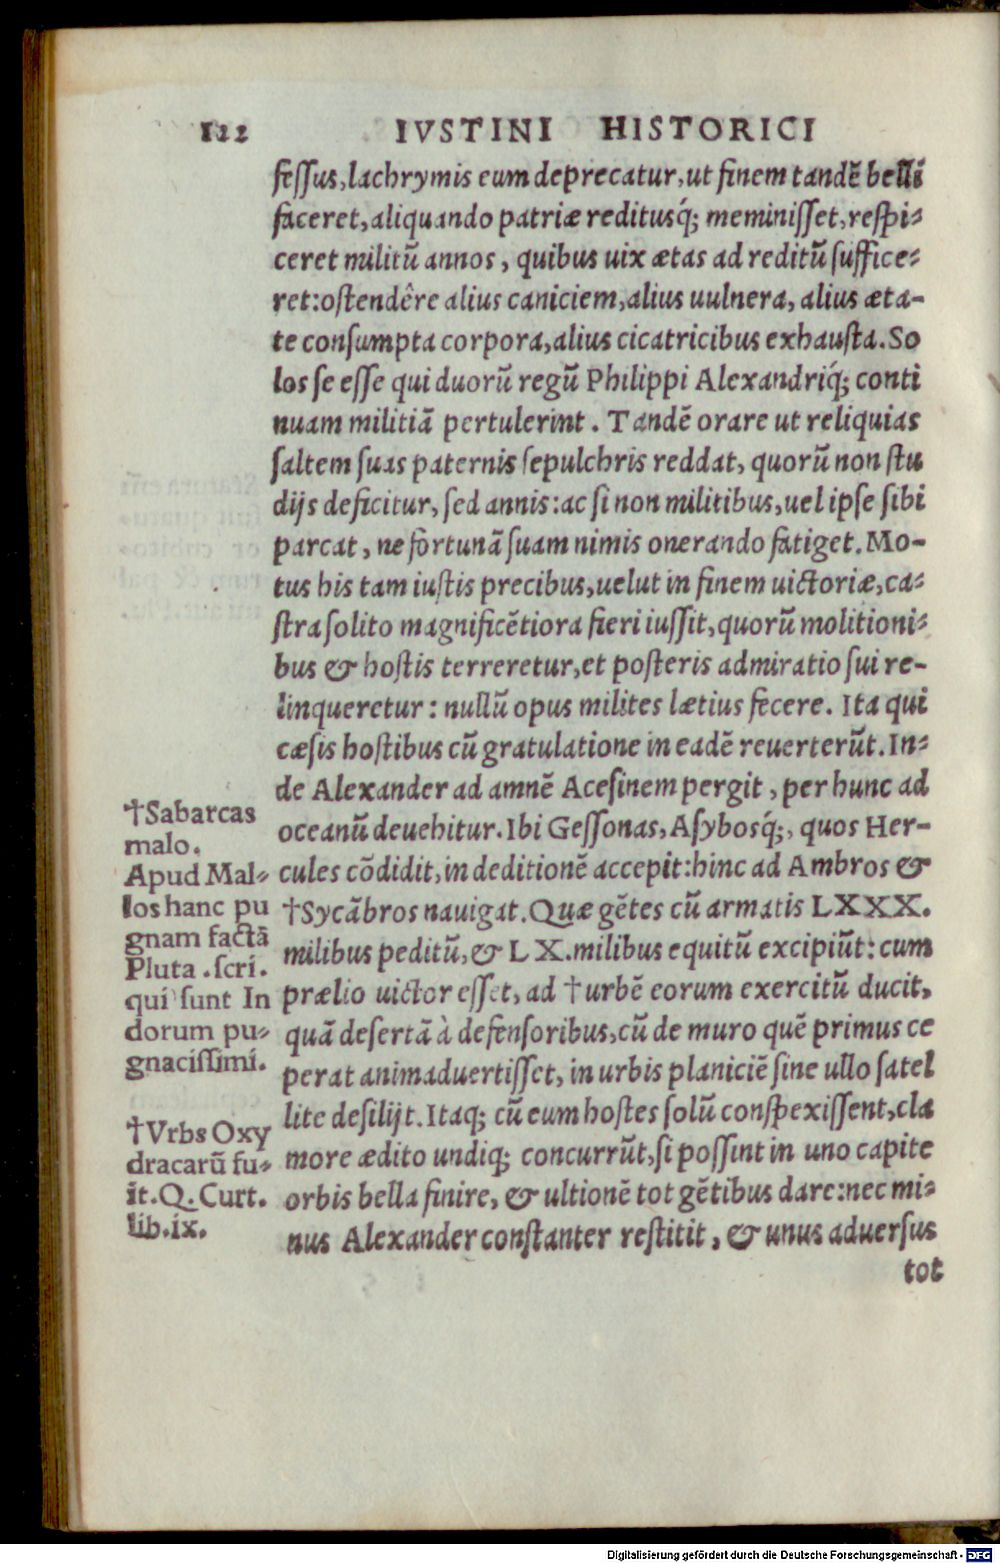 122 IVSTINI HISTORICI
fessus, lachrymis eum deprecatur, ut finem tandē belli
faceret, aliquando patriæ reditusq́; meminisset, respi-
ceret militū annos, quibus uix ætas ad reditū suffice-
ret: ostendêre alius caniciem, alius uulnera, alius æta-
te consumpta corpora, alius cicatricibus exhausta. So
los se esse qui duorū regū Philippi Alexandriq́; conti
nuam militiā pertulerint. Tandē orare ut reliquias
saltem suas paternis sepulchris reddat, quorū non stu
dijs deficitur, sed annis: ac si non militibus, uel ipse sibi
parcat, ne fortunā suam nimis onerando fatiget. Mo-
tus his tam iustis precibus, uelut in finem uictoriæ, ca-
stra solito magnificētiora fieri iussit, quorū molitioni-
bus & hostis terreretur, et posteris admiratio sui re-
linqueretur: nullū opus milites lætius fecere. Ita qui
cæsis hostibus cū gratulatione in eadē reuerterūt. In-
de Alexander ad amnē Acesinem pergit, per hunc ad
oceanū deuehitur. Ibi Gessonas, Asybosq́;, quos Her-
cules cōdidit, in deditionē accepit: hinc ad Ambros &
†Sycābros nauigat. Quæ gētes cū armatis LXXX.
milibus peditū, & LX. milibus equitū excipiūt: cum
prælio uictor esset, ad †urbē eorum exercitū ducit,
quā desertā à defensoribus, cū de muro quē primus ce
perat animaduertisset, in urbis planiciē sine ullo satel
lite desilijt. Itaq; cū eum hostes solū conspexissent, cla
more ædito undiq; concurrūt, si possint in uno capite
orbis bella finire, & ultionē tot gētibus dare: nec mi-
nus Alexander constanter restitit, & unus aduersus
tot
†Sabarcas
malo.
Apud Mal-
los hanc pu
gnam factā
Pluta. scri.
qui sunt In
dorum pu-
gnacissimi.
†Vrbs Oxy
dracarū fu-
it. Q. Curt.
lib. ix.
Digitalisierung gefördert durch die Deutsche Forschungsgemeinschaft - DFG